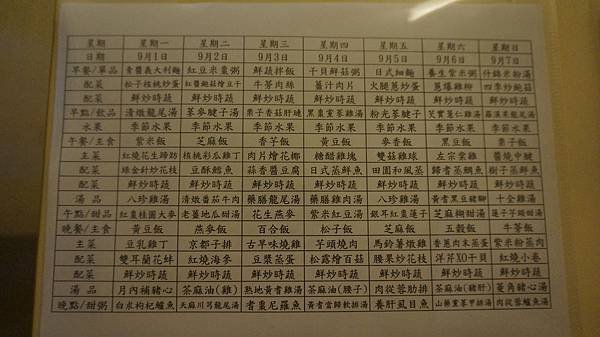 星期 星期一 星期二 星期三 星期四 星期五 星期六 星期日
日期 9月1日 9月2日 9月3日 9月4日 9月5日 9月6日 9月7日
早餐/單品 青醬義大利麵 紅豆米棗粥 鮮蔬拌飯 干貝鮮菇粥 日式細麵 養生紫米粥 什錦米粉湯
配菜 松子核桃炒蛋 紅醬鮑菇燴豆干 牛蒡肉絲 薑汁肉片 火腿蔥炒蛋 蔥爆雞柳 四季炒鮑菇
配菜 鮮炒時蔬 鮮炒時蔬 鮮炒時蔬 鮮炒時蔬 鮮炒時蔬 鮮炒時蔬 鮮炒時蔬
早點/飲品 清燉龍尾湯 茶麥腱子湯 栗子香菇肝連 黑棗粟茶雞湯 粉光茶腱子 芡實薏仁雞湯 羅漢果龍尾湯
水果 季節水果 季節水果 季節水果 季節水果 季節水果 季節水果 季節水果
午餐/主食 紫米飯 芝麻飯 香芋飯 黃豆飯 麥香飯 黑豆飯 栗子飯
主菜 紅燒花生蹄筋 核桃彩瓜雞丁 肉片燴花椰 糖醋雞塊 雙菇雞球 左宗棠雞 醬燒中腱
配菜 綠金針炒花枝 豆酥鱈魚 蒜香醬豆腐 日式蒸鮮魚 田園和風蒸 歸耆蒸鯛魚 樹子蒸鮮魚
配菜 鮮炒時蔬 鮮炒時蔬 鮮炒時蔬 鮮炒時蔬 鮮炒時蔬 鮮炒時蔬 鮮炒時蔬
湯品 八珍雞湯 清燉番茄牛肉 藥膳龍尾湯 藥膳雞肉湯 八珍雞湯 黃耆黑豆豬腳 十全雞湯
午點/甜品 紅棗桂圓大麥 老薑地瓜甜湯 花生燕麥 紫米紅豆湯 銀耳紅棗蓮子 芝麻糊甜湯 蓮子芋頭甜湯
晚餐/主食 黃豆飯 燕麥飯 百合飯 松子飯 芝麻飯 五穀飯 牛蒡飯
主菜 豆乳雞丁 京都子排 古早味燒雞 芋頭燒肉 馬鈴薯燉雞 香蔥肉末蒸蛋 紫米粉蒸肉
配菜 雙耳蘭花蚌 紅燒海參 豆漿蒸蛋 松露燴百菇 腰果炒花枝 洋芹XO干貝 紅燒小卷
配菜 鮮炒時蔬 鮮炒時蔬 鮮炒時蔬 鮮炒時蔬 鮮炒時蔬 鮮炒時蔬 鮮炒時蔬
湯品 月內補豬心 茶麻油(雞) 熟地黃耆雞湯 茶麻油(腰子) 肉從蓉肋排 茶麻油(豬肝) 菱角豬心湯
晚點/甜粥 白水枸杞鱸魚 天麻川芎龍尾湯 耆棗尼羅魚 黃耆當歸軟排湯 養肝虱目魚 山藥粟茶甲排湯 肉從蓉鱸魚湯